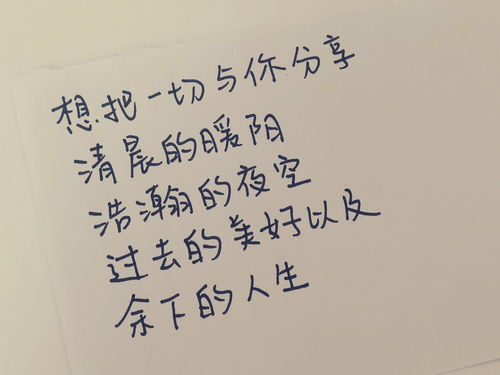 想把一切与你分享
清晨的暖阳
浩瀚的夜空
过去的美好以及
余下的人生